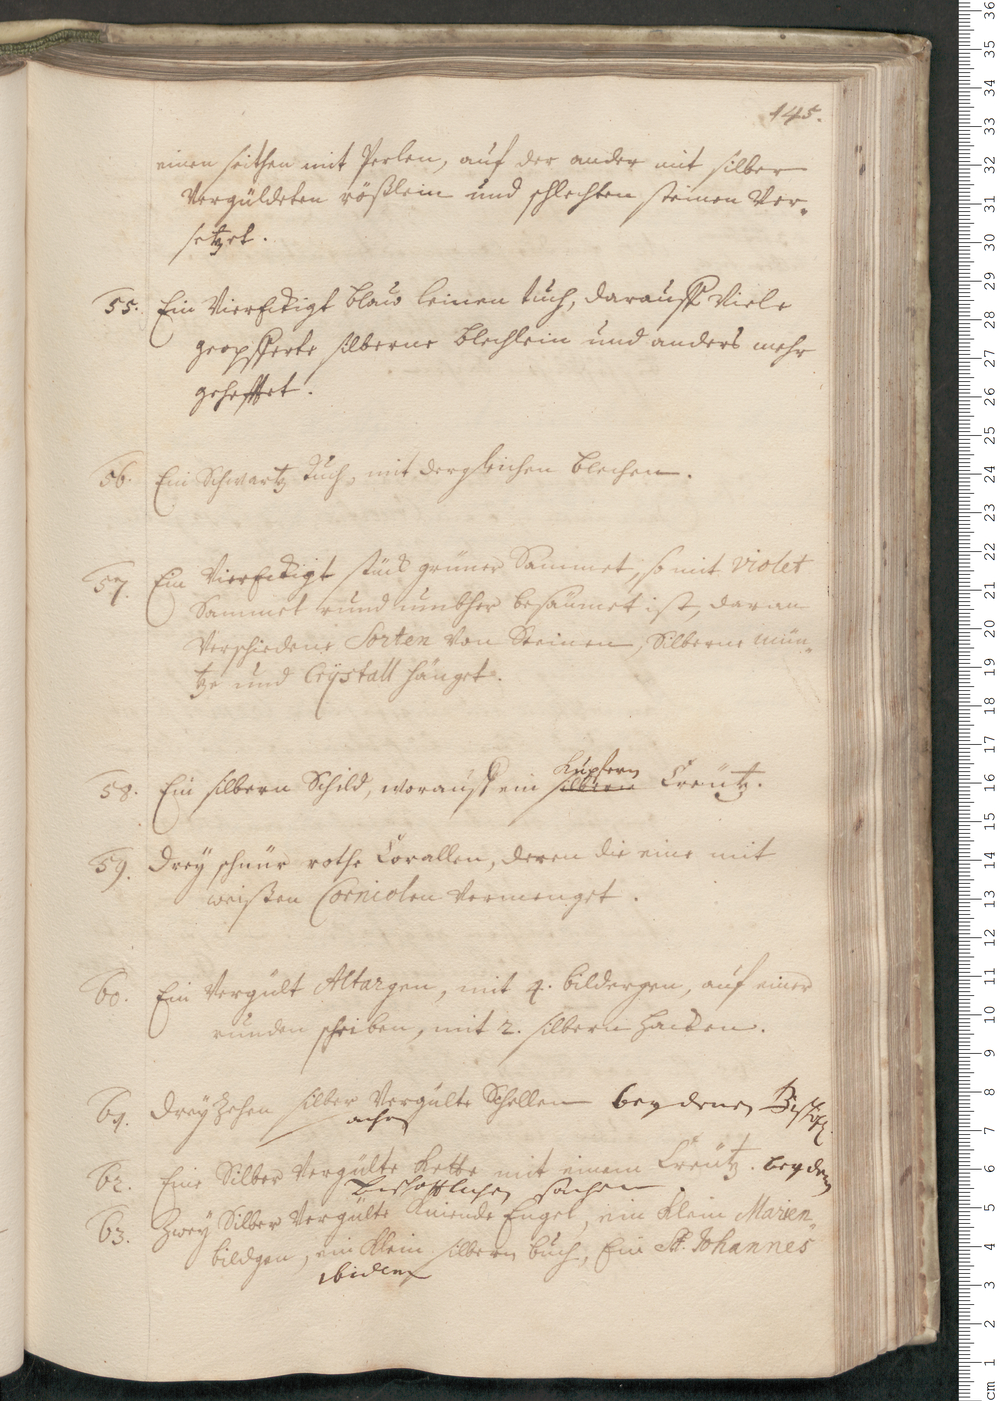 145.
einen seithen mit Perlen, auf der ander mit silber
Vergüldeten rößlein und schlechten steinen Ver„
setzet.
55. Ein Vierekigt blaw leinen tuch, darauff Viele
geopfferte silberne blechlein und anders mehr
gehefftet.
56. Ein Schwartz Tuch, mit dergleichen blechen.
57. Ein Vierekigt stück grüner Sammet, so mit violet
Sammet rund umbher besäumet ist, daran
Verschiedene Sorten von Steinen, Silberne mün„
tze und Crystall hänget.
58. Ein silbern Schild, worauff ein silbern Kupfern Creütz.
59. Drey schnür rothe Corallen, deren die eine mit
weißen Corniolen Vermenget.
60. Ein Vergült Altargen, mit 4. bildergen, auf einer
runden scheiben, mit 2. silbern Hacken.
61. Dreyzehen silber Vergülte Schellen bey denen
62. Eine Silber Vergülte Kette mit einem Creütz. bey den
Bischofflichen sachen
63. Zwey Silber Vergülte Kniende Engel, ein klein Marien„
bildgen, ein klein silbern buch, Ein St. Johannes
ibidem